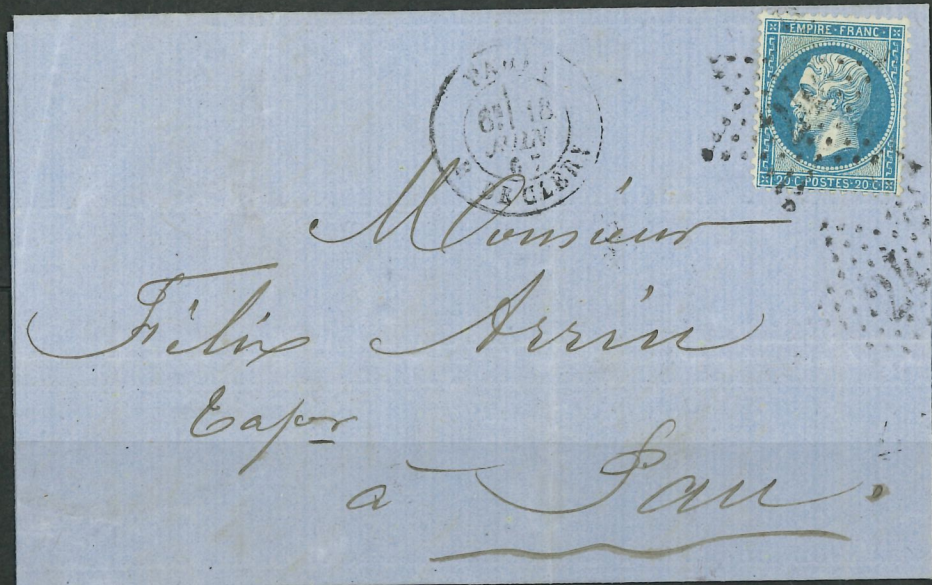 EMPIRE · FRANC ·
20 C · POSTES · 20 C
PARIS
6E/ 18
JANV
67
DE CLERY
Monsieur
Félix Arrin
Tapr
à Pau.